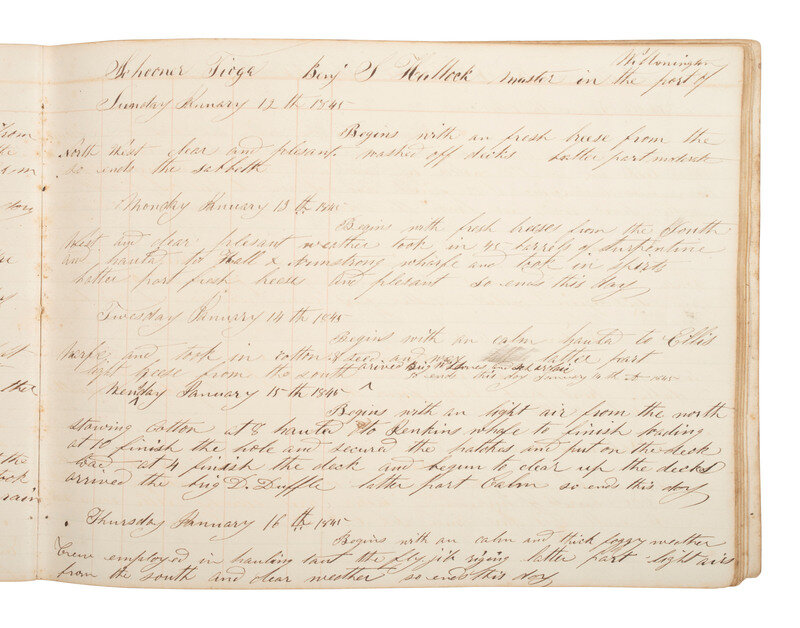 Willmington
Schooner Tioga Benj S Hullock master in the port of
Sunday January 12 th 1845
Begins with an fresh breese from the
North West clear and plesant. washed off dicks latter part modrate
so ends the sabbeth
Monday January 13 th 1845
Begins with fresh breeses from the South
West and clear plesant weather took in 45 barrels of turpentine
and hauld for Hall & Armstrong wharfe and took in spirts
latter part fresh breses and plesant so ends this day
Tuesday January 14 th 1845
Begins with an calm hauld to Ellis
warfe and took in cotton & seed and wax latter part
light breese from the south arrived Brig
so ends this day January 14 th 1845
Wensday January 15 th 1845
Begins with an light air from the north
stowing cotton at 8 hauld to Jenkins whafe to finish loading
at 10 finish the hole and secured the hatches and put on the deck
load at 4 finish the deck and begun to clear up the decks
arrived the brig D. Duffle latter part Calm so ends this day
Thursday January 16 th 1845
Begins with an calm and thick foggy weather
Crew employed in hauling taut the fly jib riging latter part light airs
from the south and clear weather so ends this day
from
the
day
the
the
took
rain